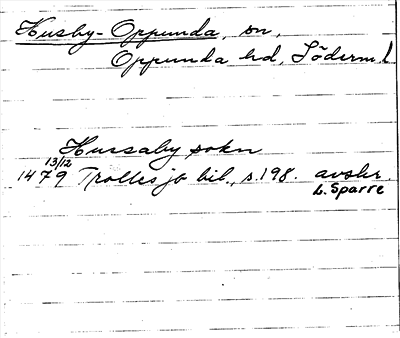 Husby-Oppunda, sn,
Oppunda hd, Söderml
Hussaby sokn
13/12
1479 Trolles jb bil., s. 198. avskr.
L. Sparre